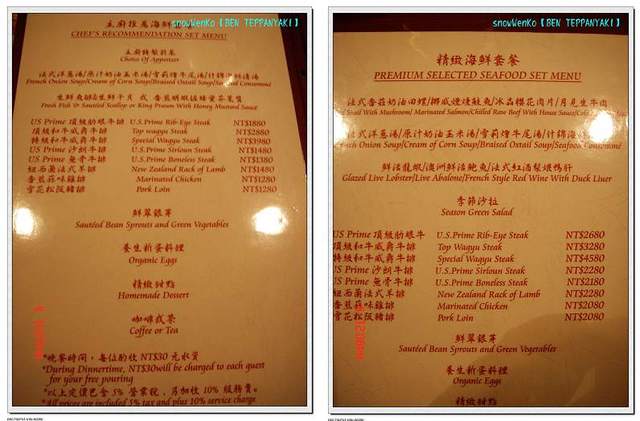 主廚推薦海鮮
snowWenKo【BEN TEPPANYAKI】
CHEF'S RECOMMENDATION SET MENU
主廚特製前菜
Choice Of Appetizer
法式洋蔥湯/原汁奶油玉米湯/雪莉燴牛尾湯/什錦海鮮清湯
French Onion Soup/Cream of Corn Soup/Braised Oxtail Soup/Seafood Consommé
Fresh Fish Or Sautéed Scallop or King Prawn With Honey Mustard Sauce
US Prime 頂級肋眼牛排 U.S.Prime Rib-Eye Steak NT$1880
頂級和牛威齊牛排 Top wagyu Steak NT$2880
特級和牛威齊牛排 Special Wagyu Steak NT$3980
US Prime 沙朗牛排 U.S.Prime Sirloun Steak NT$1480
US Prime 無骨牛排 U.S.Prime Boneless Steak NT$1380
紐西蘭法式羊排 New Zealand Rack of Lamb NT$1480
香煎蒜味雞排 Marinated Chicken NT$1280
雪花松阪豬排 Pork Loin NT$1280
鮮翠銀芽
Sautéed Bean Sprouts and Green Vegetables
養生新蛋料理
Organic Eggs
精緻甜點
Homemade Dessert
咖啡或茶
Coffee or Tea
*晚餐時間，每位酌收 NT$30 元水資
*During Dinnertime, NT$30will be charged to each guest
for your free pouring
*以上定價已含 5% 營業稅，另加收 10% 服務費。
*All prices are included 5% tax and plus 10% service charge
snowWenKo【BEN TEPPANYAKI】
精緻海鮮套餐
PREMIUM SELECTED SEAFOOD SET MENU
法式香菇奶油田螺/挪威煙燻鮭魚/冰晶櫻花肉片/月見生牛肉
Snail With Mushroom/ Marinated Salmon/Chilled Raw Beef With House Sauce
法式洋蔥湯/原汁奶油玉米湯/雪莉燴牛尾湯/什錦海
French Onion Soup/Cream of Corn Soup/Braised Oxtail Soup/Seafood Consommé
鮮活龍蝦/澳洲鮮活鮑魚/法式紅酒梨煨鴨肝
Glazed Live Lobster/Live Abalone/French Style Red Wine With Duck Liver
季節沙拉
Season Green Salad
US Prime 頂級肋眼牛 U.S.Prime Rib-Eye Steak NT$2680
頂級和牛威齊牛排 Top Wagyu Steak NT$3280
特級和牛威齊牛排 Special Wagyu Steak NT$4580
US Prime 沙朗牛排 U.S.Prime Sirloun Steak NT$2280
US Prime 無骨牛排 U.S.Prime Boneless Steak NT$2180
紐西蘭法式羊排 New Zealand Rack of Lamb NT$2280
香煎蒜味雞排 Marinated Chicken NT$2080
雪花松阪豬排 Pork Loin NT$2080
鮮翠銀芽
Sautéed Bean Sprouts and Green Vegetables
養生新蛋料理
Organic Eggs
精緻甜點